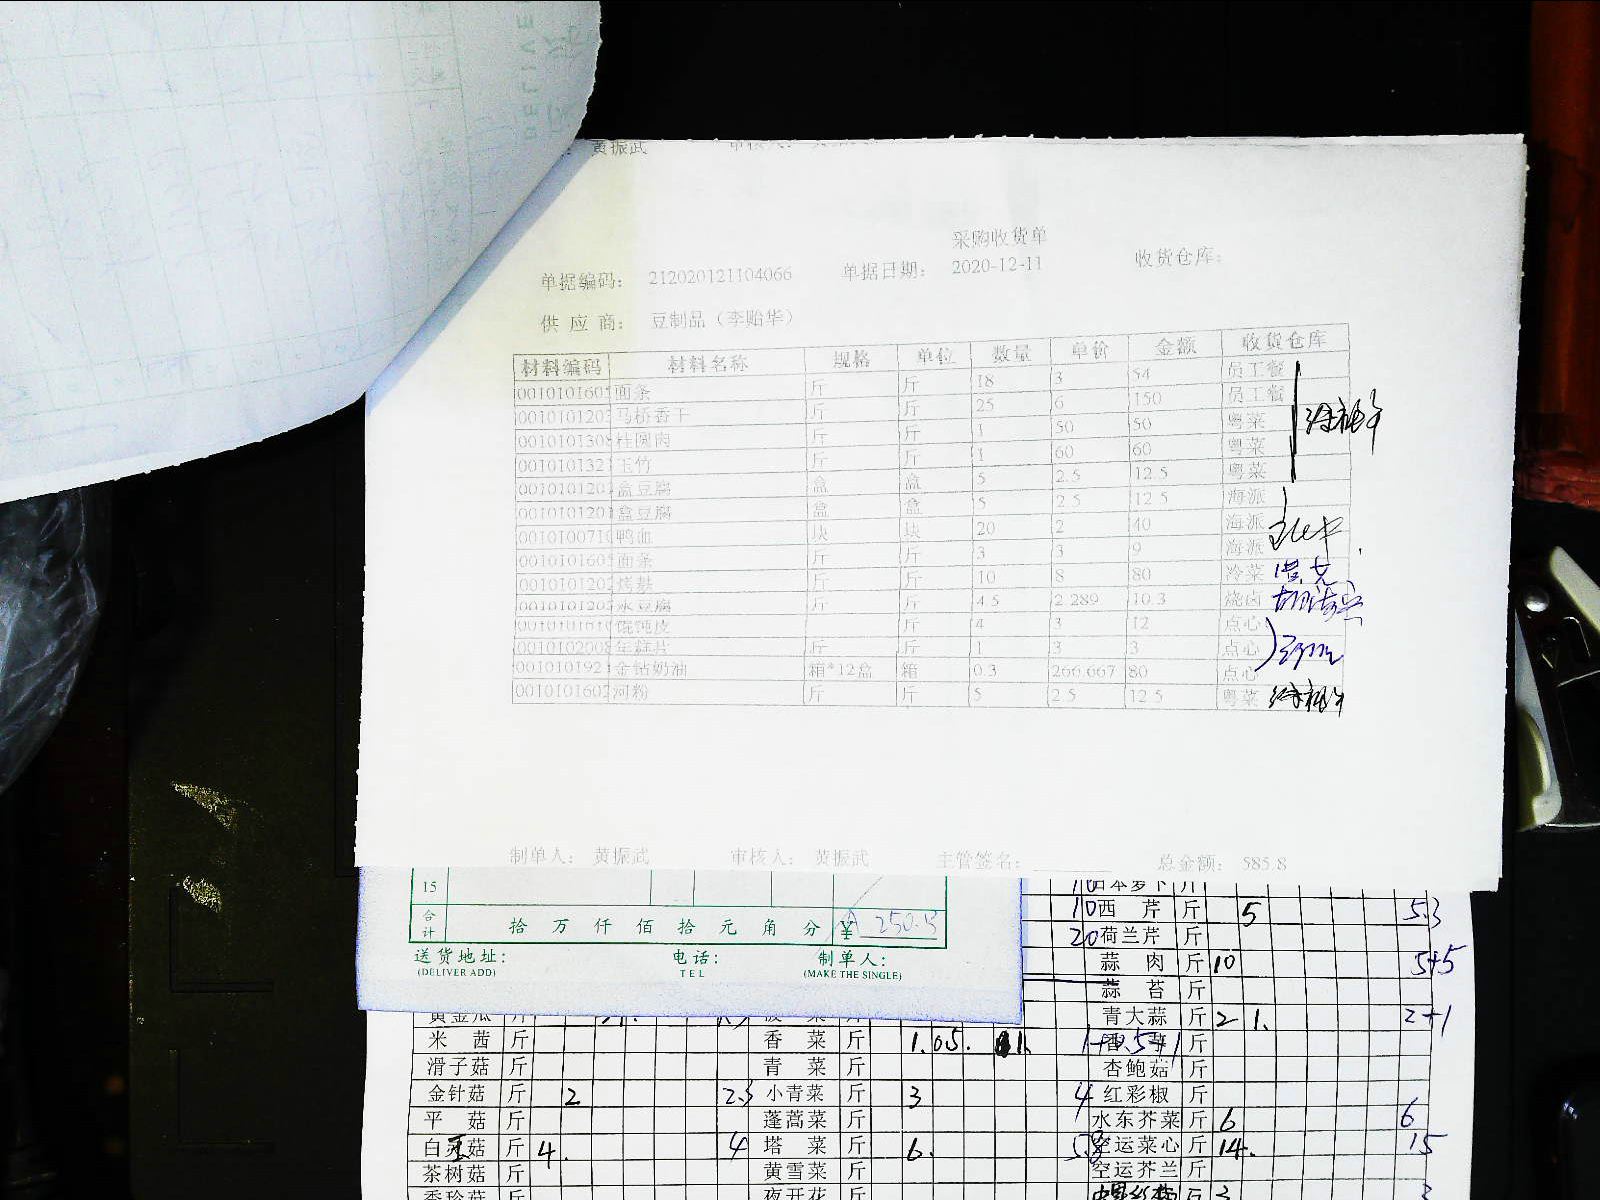 黄振武
采购收货单
单据编码： 212020121104066 单据日期： 2020-12-11 收货仓库：
供 应 商： 豆制品（李贻华）
材料编码 材料名称 规格 单位 数量 单价 金额 收货仓库
001010160 面条 斤 斤 18 3 54 员工餐
001010120 马桥香干 斤 斤 25 6 150 员工餐
001010130 桂圆肉 斤 斤 1 50 50 粤菜
001010132 玉竹 斤 斤 1 60 60 粤菜
001010120 盒豆腐 盒 盒 5 2.5 12.5 粤菜
001010120 盒豆腐 盒 盒 5 2.5 12.5 海派
001010071 鸭血 块 块 20 2 40 海派
001010160 面条 斤 斤 3 3 9 海派
001010120 烤麸 斤 斤 10 8 80 冷菜
001010120 水豆腐 斤 斤 4.5 2.289 10.3 烧卤
馄饨皮 斤 4 3 12 点心
001010200 年糕片 斤 斤 1 3 3 点心
001010192 金钻奶油 箱*12盒 箱 0.3 266.667 80 点心
001010160 河粉 斤 斤 5 2.5 12.5 粤菜
制单人： 黄振武 审核人： 黄振武 主管签名： 总金额： 585.8
15
合计 拾 万 仟 佰 拾 元 角 分 ¥
送货地址： 电话： 制单人：
(DELIVER ADD) TEL (MAKE THE SINGLE)
日本萝卜 斤
10 西芹 斤 5 5.3
20 荷兰芹 斤
蒜肉 斤 10 5+5
蒜苔 斤
黄金瓜 斤 青大蒜 斤 2 1. 2+1
米茜 斤 香菜 斤 1.05. 斤
滑子菇 斤 青菜 斤 杏鲍菇 斤
金针菇 斤 2 2.3 小青菜 斤 3 4 红彩椒 斤
平菇 斤 蓬蒿菜 斤 水东芥菜 斤 6 6
白灵菇 斤 4. 4 塔菜 斤 6. 5.8 空运菜心 斤 14. 15
茶树菇 斤 黄雪菜 斤 空运芥兰 斤
秀珍菇 斤 夜开花 斤 斤 3